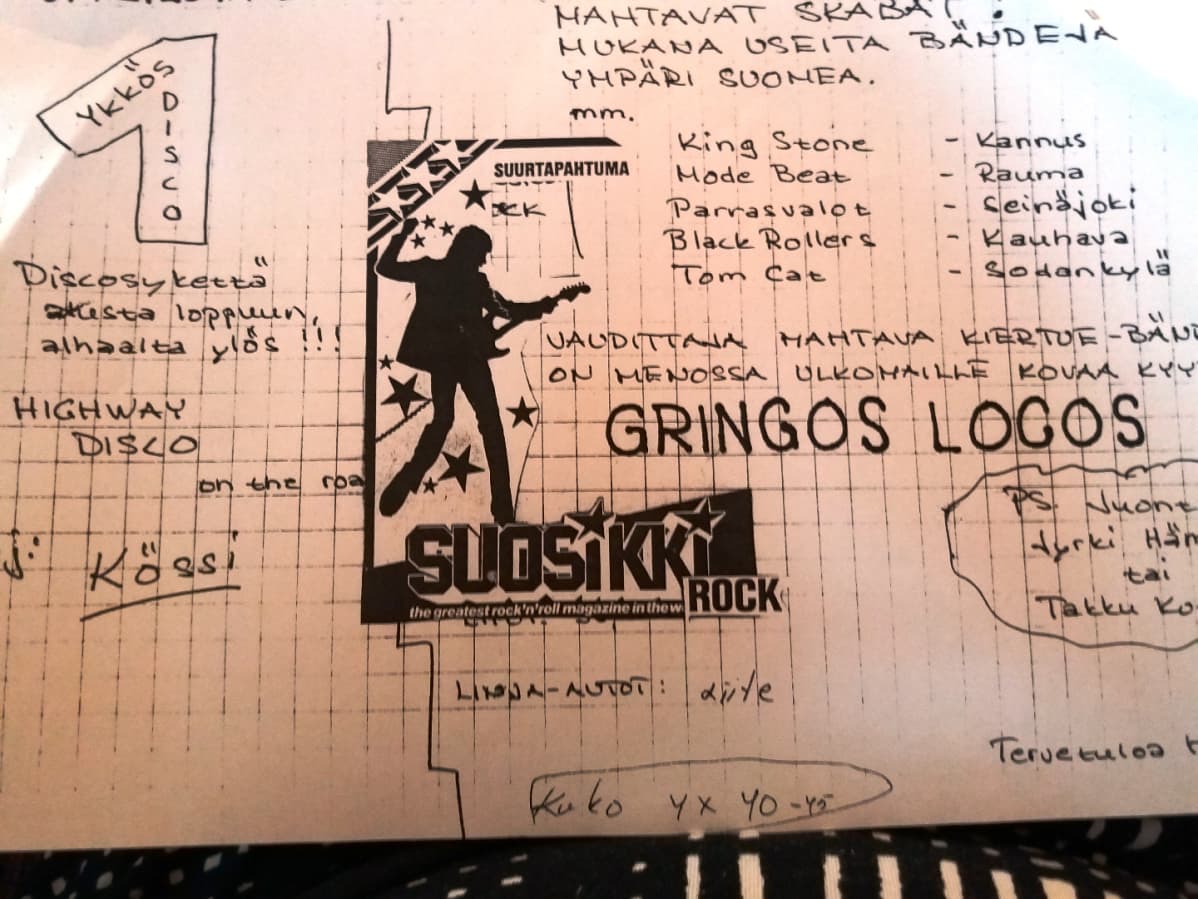 YKKÖS
DISCO
Discosykettä
alusta loppuun,
alhaalta ylös !!!
HIGHWAY
DISCO
on the roa
j:
Kössi
MAHTAVAT SKABAT!
MUKANA USEITA BÄNDEJÄ
YMPÄRI SUOMEA.
mm.
King Stone - Kannus
Mode Beat - Rauma
Parrasvalot - Seinäjoki
Black Rollers - Kauhava
Tom Cat - Sodankylä
SUURTAPAHTUMA
VAUDITTAJA MAHTAVA KIERTUE-BÄN
ON MENOSSA ULKOMAILLE KOVAA KYY
GRINGOS LOCOS
SUOSIKKI
ROCK
the greatest rock'n'roll magazine in the w
PS. Juont
Jyrki Häm
tai
Takku Ko
LINJA-AUTOT: Liite
Tervetuloa
Kuko 4 x 40-45